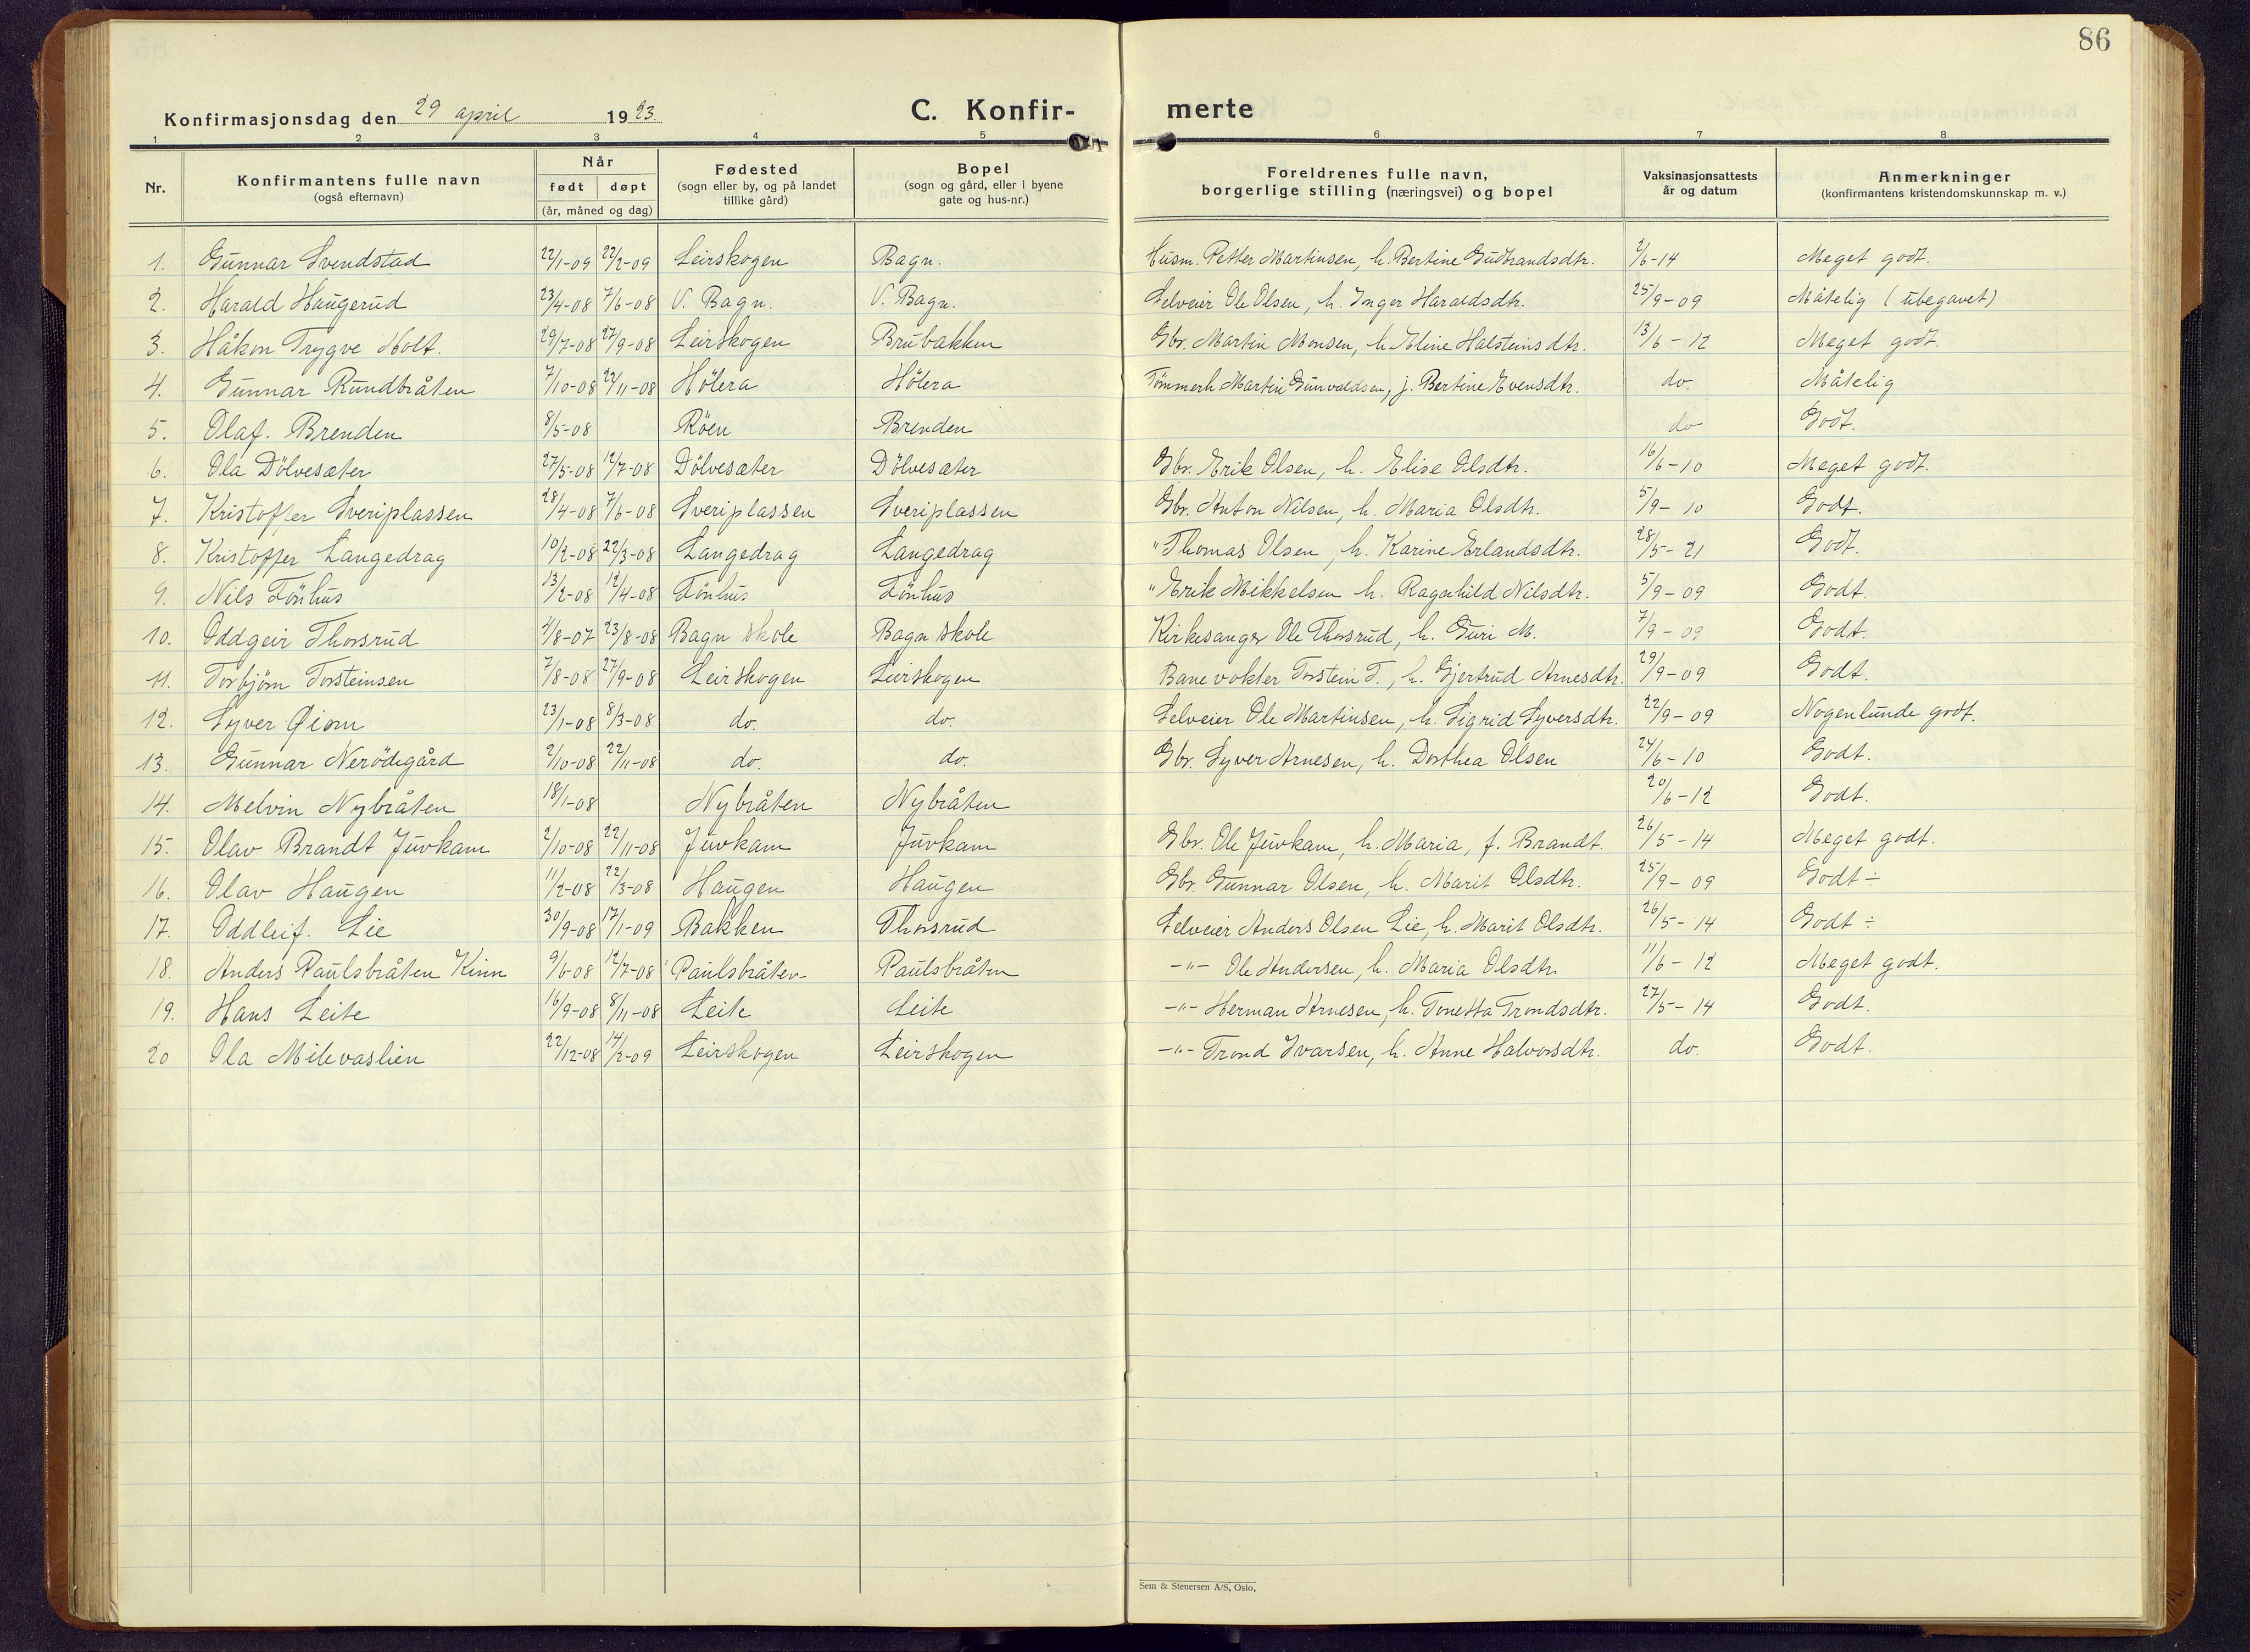 86
Konfirmasjonsdag den 29 april 1923.
C. Konfir-
merte
1 2 3 4 5 6 7 8
Nr. Konfirmantens fulle navn (også efternavn) Når født døpt (år, måned og dag) Fødested (sogn eller by, og på landet tillike gård) Bopel (sogn og gård, eller i byene gate og hus-nr.) Foreldrenes fulle navn, borgerlige stilling (næringsvei) og bopel Vaksinasjonsattests år og datum Anmerkninger (konfirmantens kristendomskunnskap m. v.)
1. Gunnar Svendstad 22/1-09 22/2-09 Leirskogen Bagn. Husm. Petter Martinsen, h. Bertine Gudbrandsdtr. 2/6-14 Meget godt.
2. Harald Haugerud 23/4-08 7/6-08 V. Bagn. V. Bagn. Selveier Ole Olsen, h. Inger Haraldsdtr. 25/9-09 Måtelig (ubegavet)
3. Håkon Trygve Holt. 29/7-08 27/9-08 Leirskogen Brubakken Gbr. Martin Monsen, h. Eline Halsteinsdtr. 13/6-12 Meget godt.
4. Gunnar Rundbråten 7/10-08 22/11-08 Hölera Hölera Tömmerh. Martin Gunvaldsen, j. Bertine Evensdtr. do. Måtelig
5. Olaf. Brenden 8/5-08 Röen Brenden do Godt.
6. Ola Dölvesæter 27/5-08 12/7-08 Dölvesæter Dölvesæter Gbr. Erik Olsen, h. Elise Olsdtr. 16/6-10 Meget godt.
7. Kristoffer Sveriplassen 28/4-08 7/6-08 Sveriplassen Sveriplassen Gbr. Anton Nilsen, h. Maria Olsdtr. 5/9-10 Godt.
8. Kristoffer Langedrag 10/2-08 22/3-08 Langedrag Langedrag " Thomas Olsen, h. Karine Erlandsdtr. 28/5-21 Godt.
9. Nils Fönhus 13/2-08 12/4-08 Fönhus Fönhus " Erik Mikkelsen h. Ragnhild Nilsdtr. 5/9-09 Godt.
10. Oddgeir Thorsrud 4/8-07 23/8-08 Bagn skole Bagn skole Kirkesanger Ole Thorsrud, h. Guri M. 7/9-09 Godt.
11. Torbjörn Torsteinsen 7/8-08 27/9-08 Leirskogen Leirskogen Banevokter Torstein T., h. Gjertrud Arnesdtr. 29/9-09 Godt.
12. Syver Øiom 23/1-08 8/3-08 do. do. Selveier Ole Martinsen, h. Sigrid Syversdtr. 22/9-09 Nogenlunde godt.
13. Gunnar Nerödegård 2/10-08 22/11-08 do. do. Gbr. Syver Arnesen, h. Dorthea Olsen 24/6-10 Godt.
14. Melvin Nybråten 18/1-08 Nybråten Nybråten 20/6-12 Godt.
15. Olav Brandt Juvkam 2/10-08 22/11-08 Juvkam Juvkam Gbr. Ole Juvkam, h. Maria, f. Brandt. 26/5-14 Meget godt.
16. Olav Haugen 11/2-08 22/3-08 Haugen Haugen Gbr. Gunnar Olsen, h. Marit Olsdtr. 25/9-09 Godt ÷
17. Oddleif. Lie 30/9-08 17/1-09 Bakken Thorsrud Selveier Anders Olsen Lie, h. Marit Olsdtr. 26/5-14 Godt ÷
18. Anders Paulsbråten Kinn 9/6-08 12/7-08 Paulsbråten Paulsbråten -"- Ole Andersen, h. Maria Olsdtr. 11/6-12 Meget godt.
19. Hans Leite 16/9-08 8/11-08 Leite Leite -"- Herman Arnesen, h. Tonetta Trondsdtr. 27/5-14 Godt.
20 Ola Milevaslien 22/12-08 14/2-09 Leirskogen Leirskogen -"- Trond Ivarsen, h. Anne Halvorsdtr. do. Godt.
Sem & Stenersen A/S, Oslo.